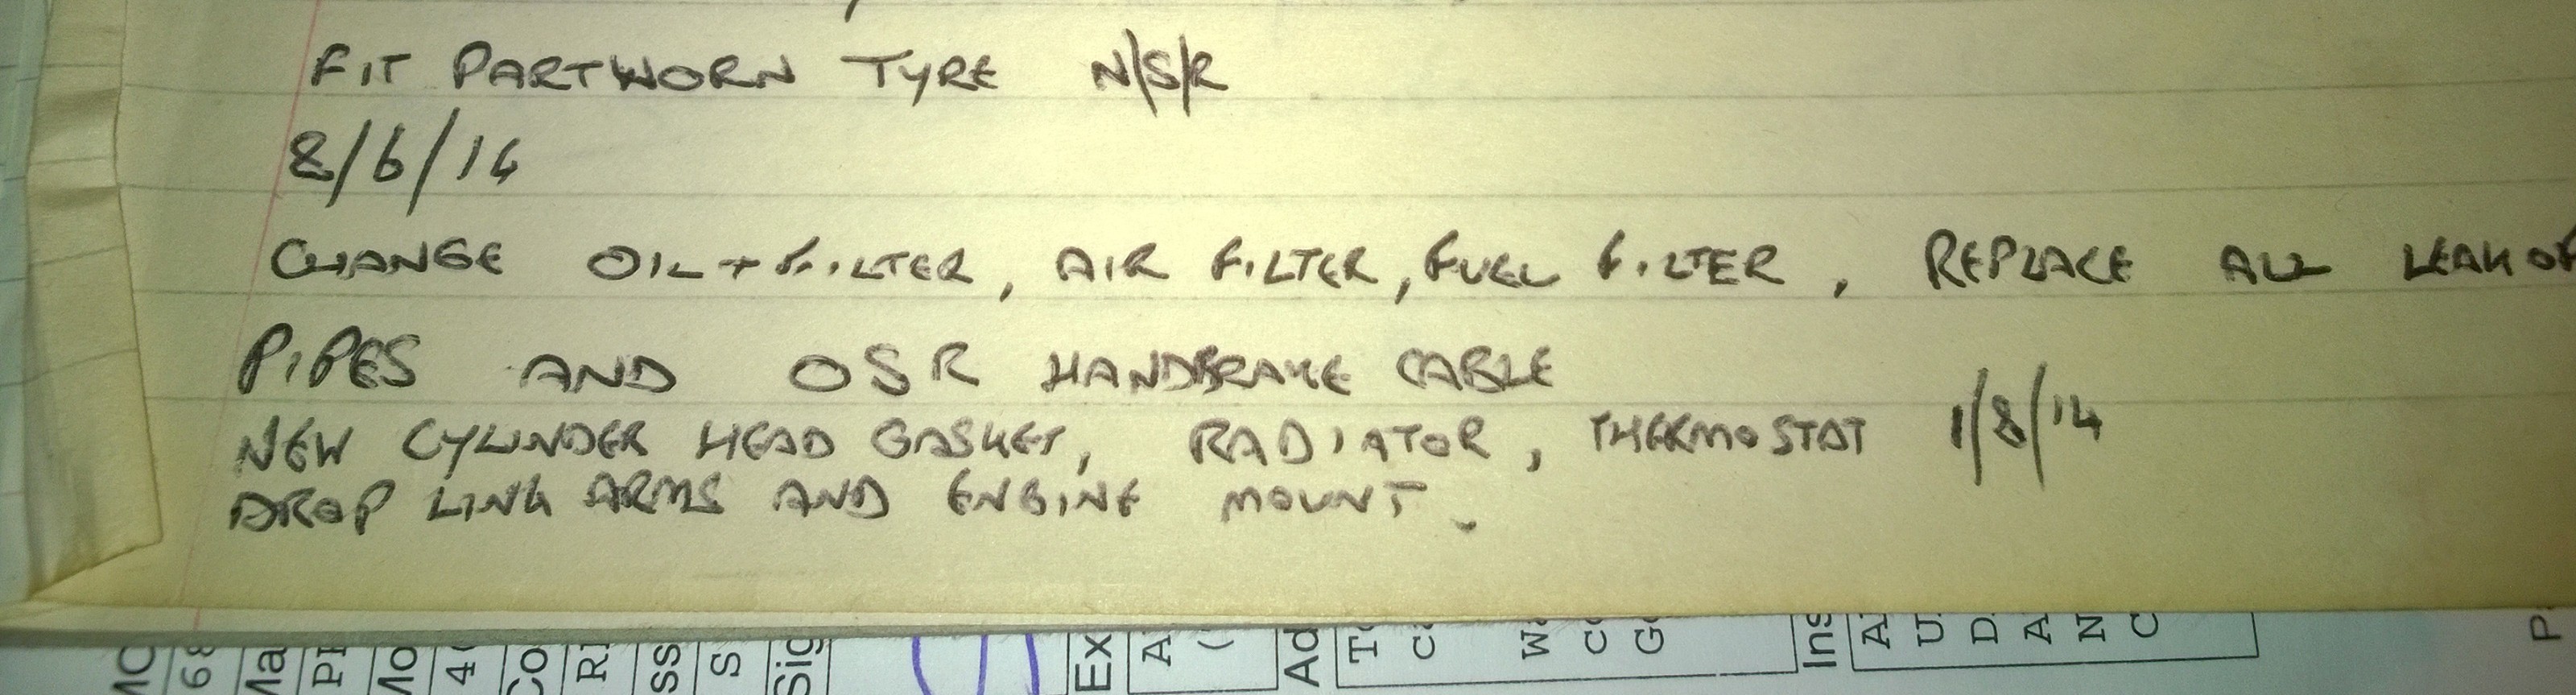 FIT PARTWORN TYRE N/S/R
8/6/14
CHANGE OIL + FILTER, AIR FILTER, FUEL FILTER, REPLACE ALL LEAK OF
PIPES AND OSR HANDBRAKE CABLE
NEW CYLINDER HEAD GASKET, RADIATOR, THERMOSTAT 1/8/14
DROP LINK ARMS AND ENGINE MOUNT.
MC
68
Ma
PI
Mo
40
Co
RI
ss
S
Sig
Ex
A
(
Ad
To
Ca
Wa
Co
Go
Ins
A
U
D
A
N
C
P